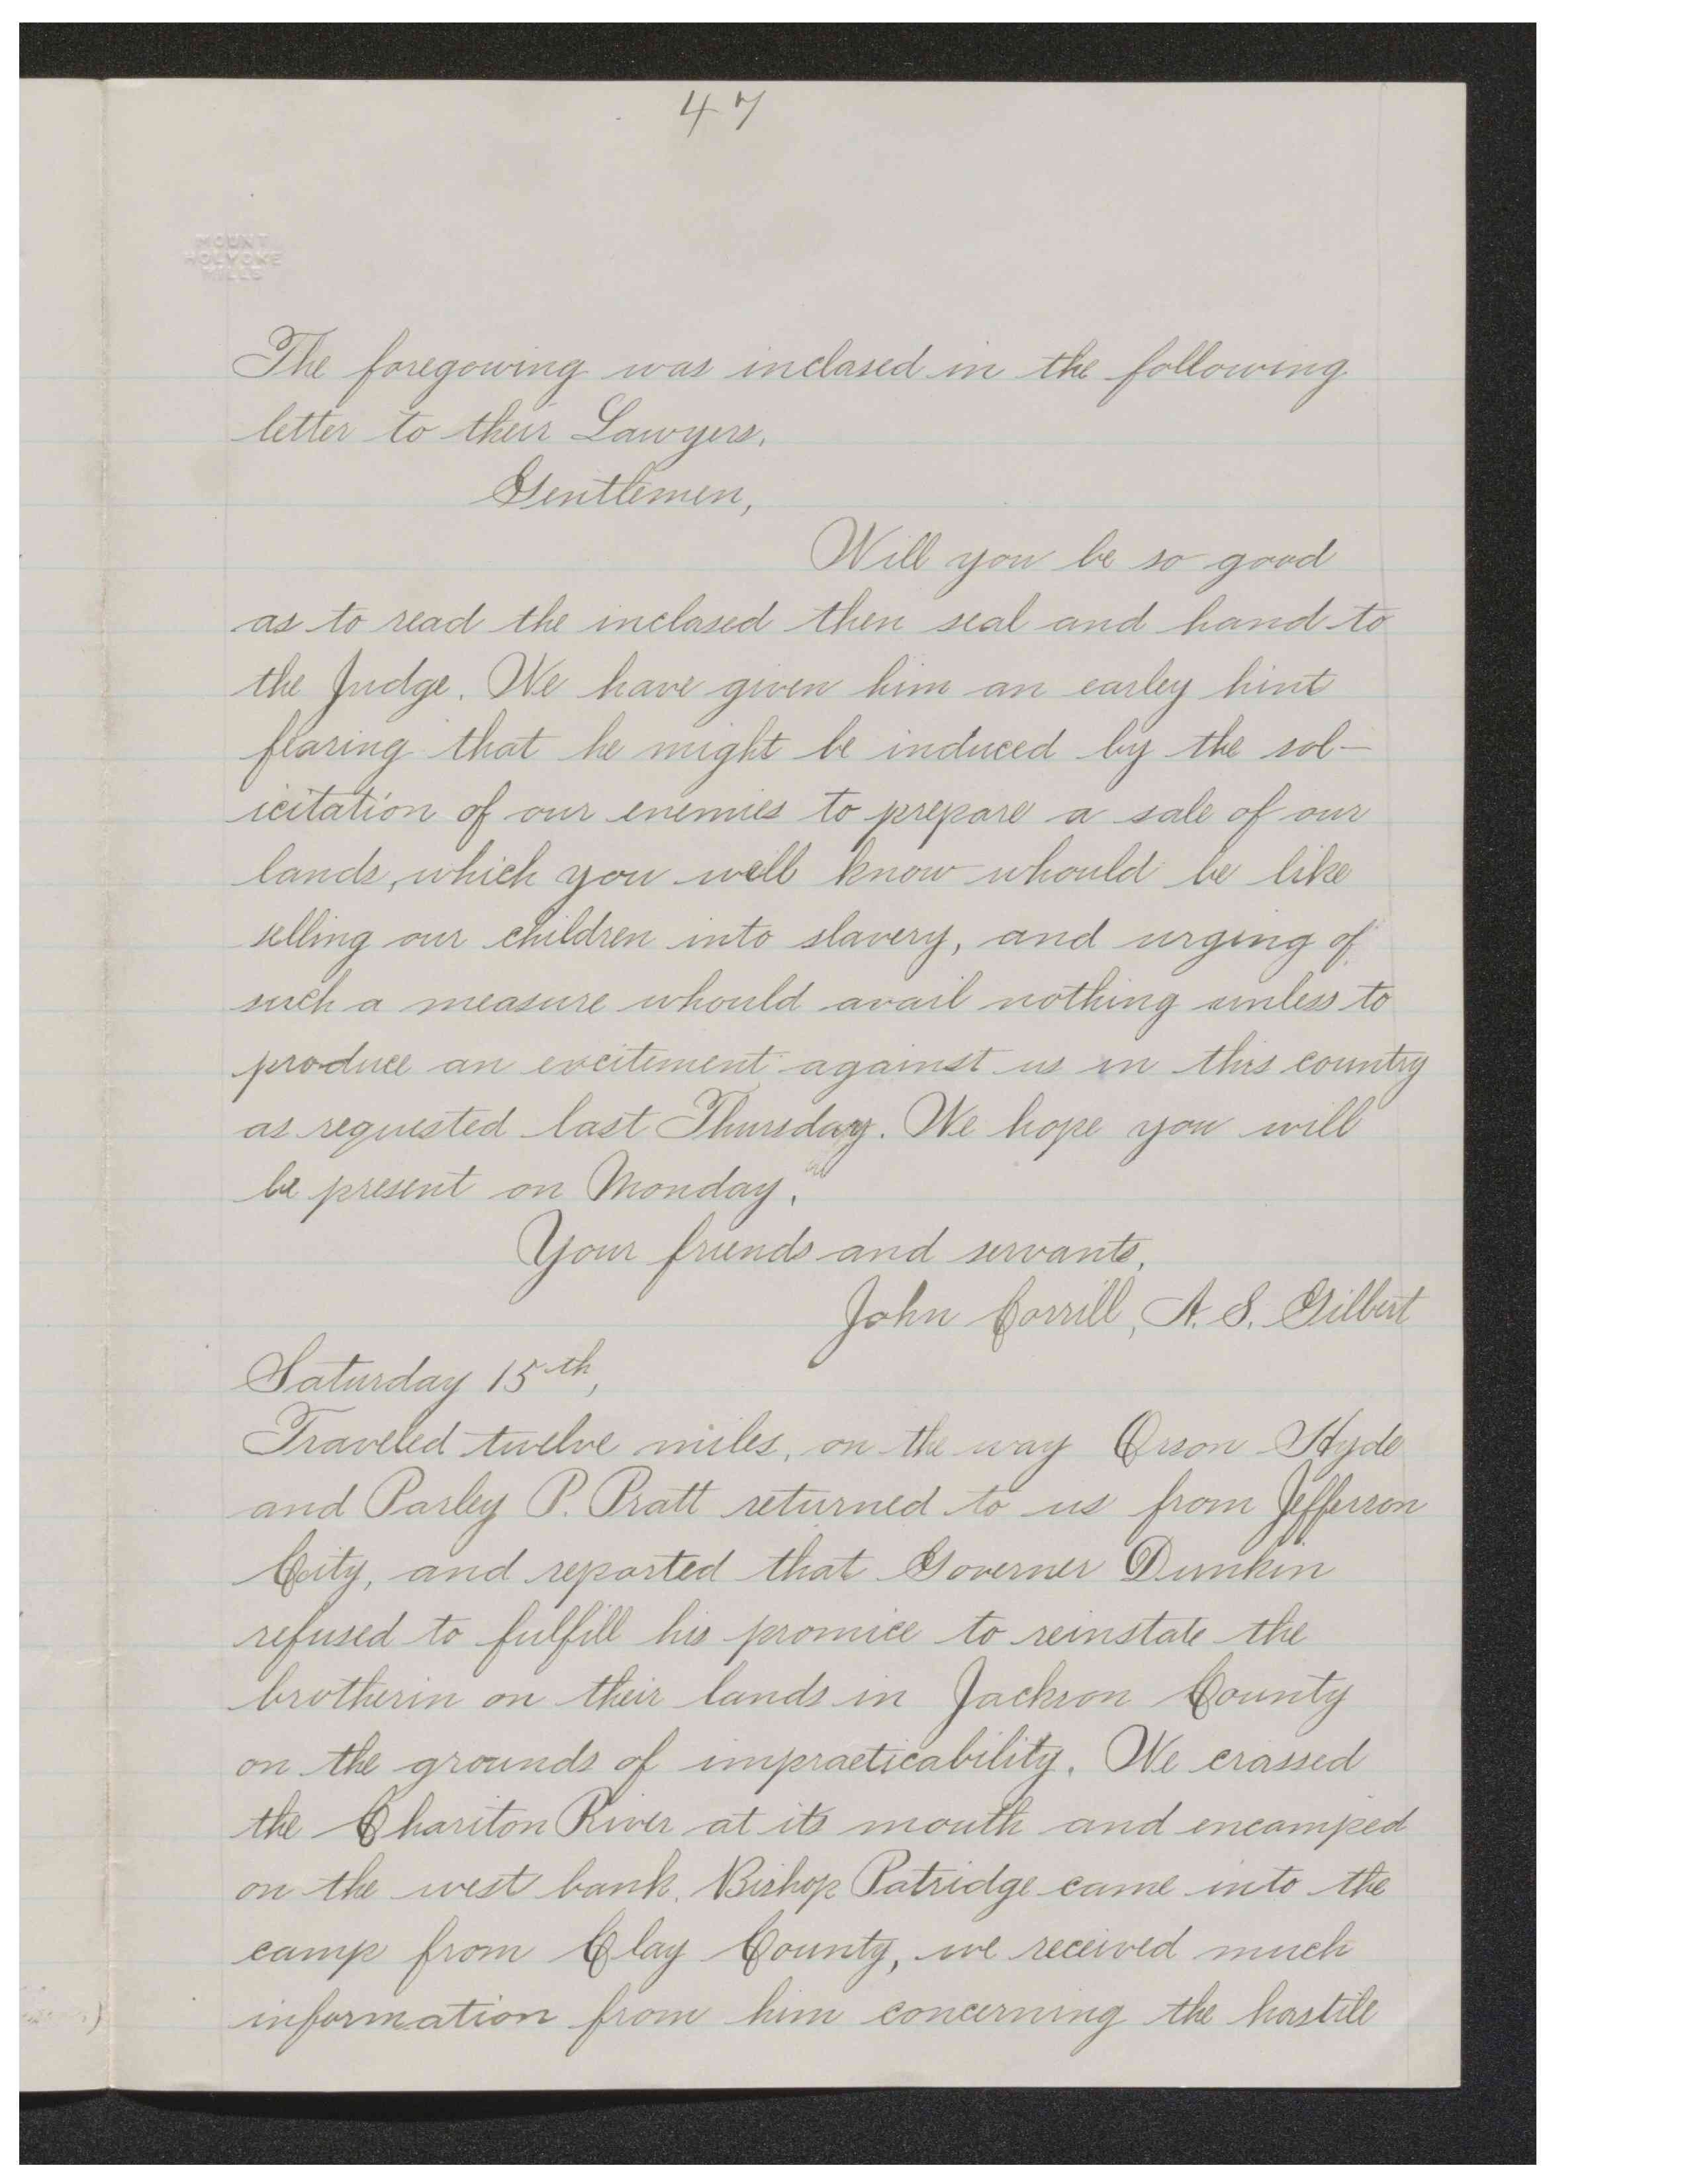 47
MOUNT
HOLYOKE
MILLS
The foregowing was inclosed in the following
letter to their Lawyers.
Gentlemen,
Will you be so good
as to read the inclosed then seal and hand to
the Judge. We have given him an earley hint
fearing that he might be induced by the sol-
icitation of our enemies to prepare a sale of our
lands, which you well know whould be like
selling our children into slavery, and urging of
such a measure whould avail nothing unless to
produce an excitement against us in this country
as requested last Thursday. We hope you will
be present on Monday.
Your friends and servants.
John Corrill, A. S. Gilbert
Saturday 15th,
Traveled twelve miles, on the way Orson Hyde
and Parley P. Pratt returned to us from Jefferson
City, and reported that Governer Dunkin
refused to fulfill his promice to reinstate the
brotherin on their lands in Jackson County
on the grounds of impracticability. We crossed
the Chariton River at its mouth and encamped
on the west bank. Bishop Patridge came into the
camp from Clay County, we received much
information from him concerning the hostile